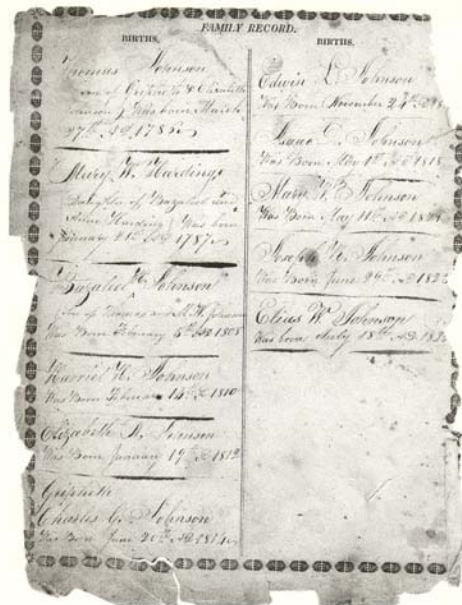 FAMILY RECORD.
BIRTHS.
Thomas Johnson
son of & Elizabeth
Johnson Was born March
27th AD 1785
Mary W. Harding
Daughter of Bazaleel and
Harding Was born
February 21st AD 1787
Bazaleel H. Johnson
Son of Thomas and M. W. Johnson
Was Born February 5th AD 1808
Harriel H. Johnson
Was Born February 15th AD 1810
Elizabeth A. Johnson
Was Born January 19th AD 1812
Griffith
Charles G. Johnson
Was Born June 20th AD 1814
BIRTHS.
Edwin L. Johnson
Was Born November 24th
Isaac D. Johnson
Was Born May 1st AD 1818
Mary W. Johnson
Was Born May 11th AD
Joseph W. Johnson
Was Born June 26th AD
Elias W. Johnson
Was born July 18th AD